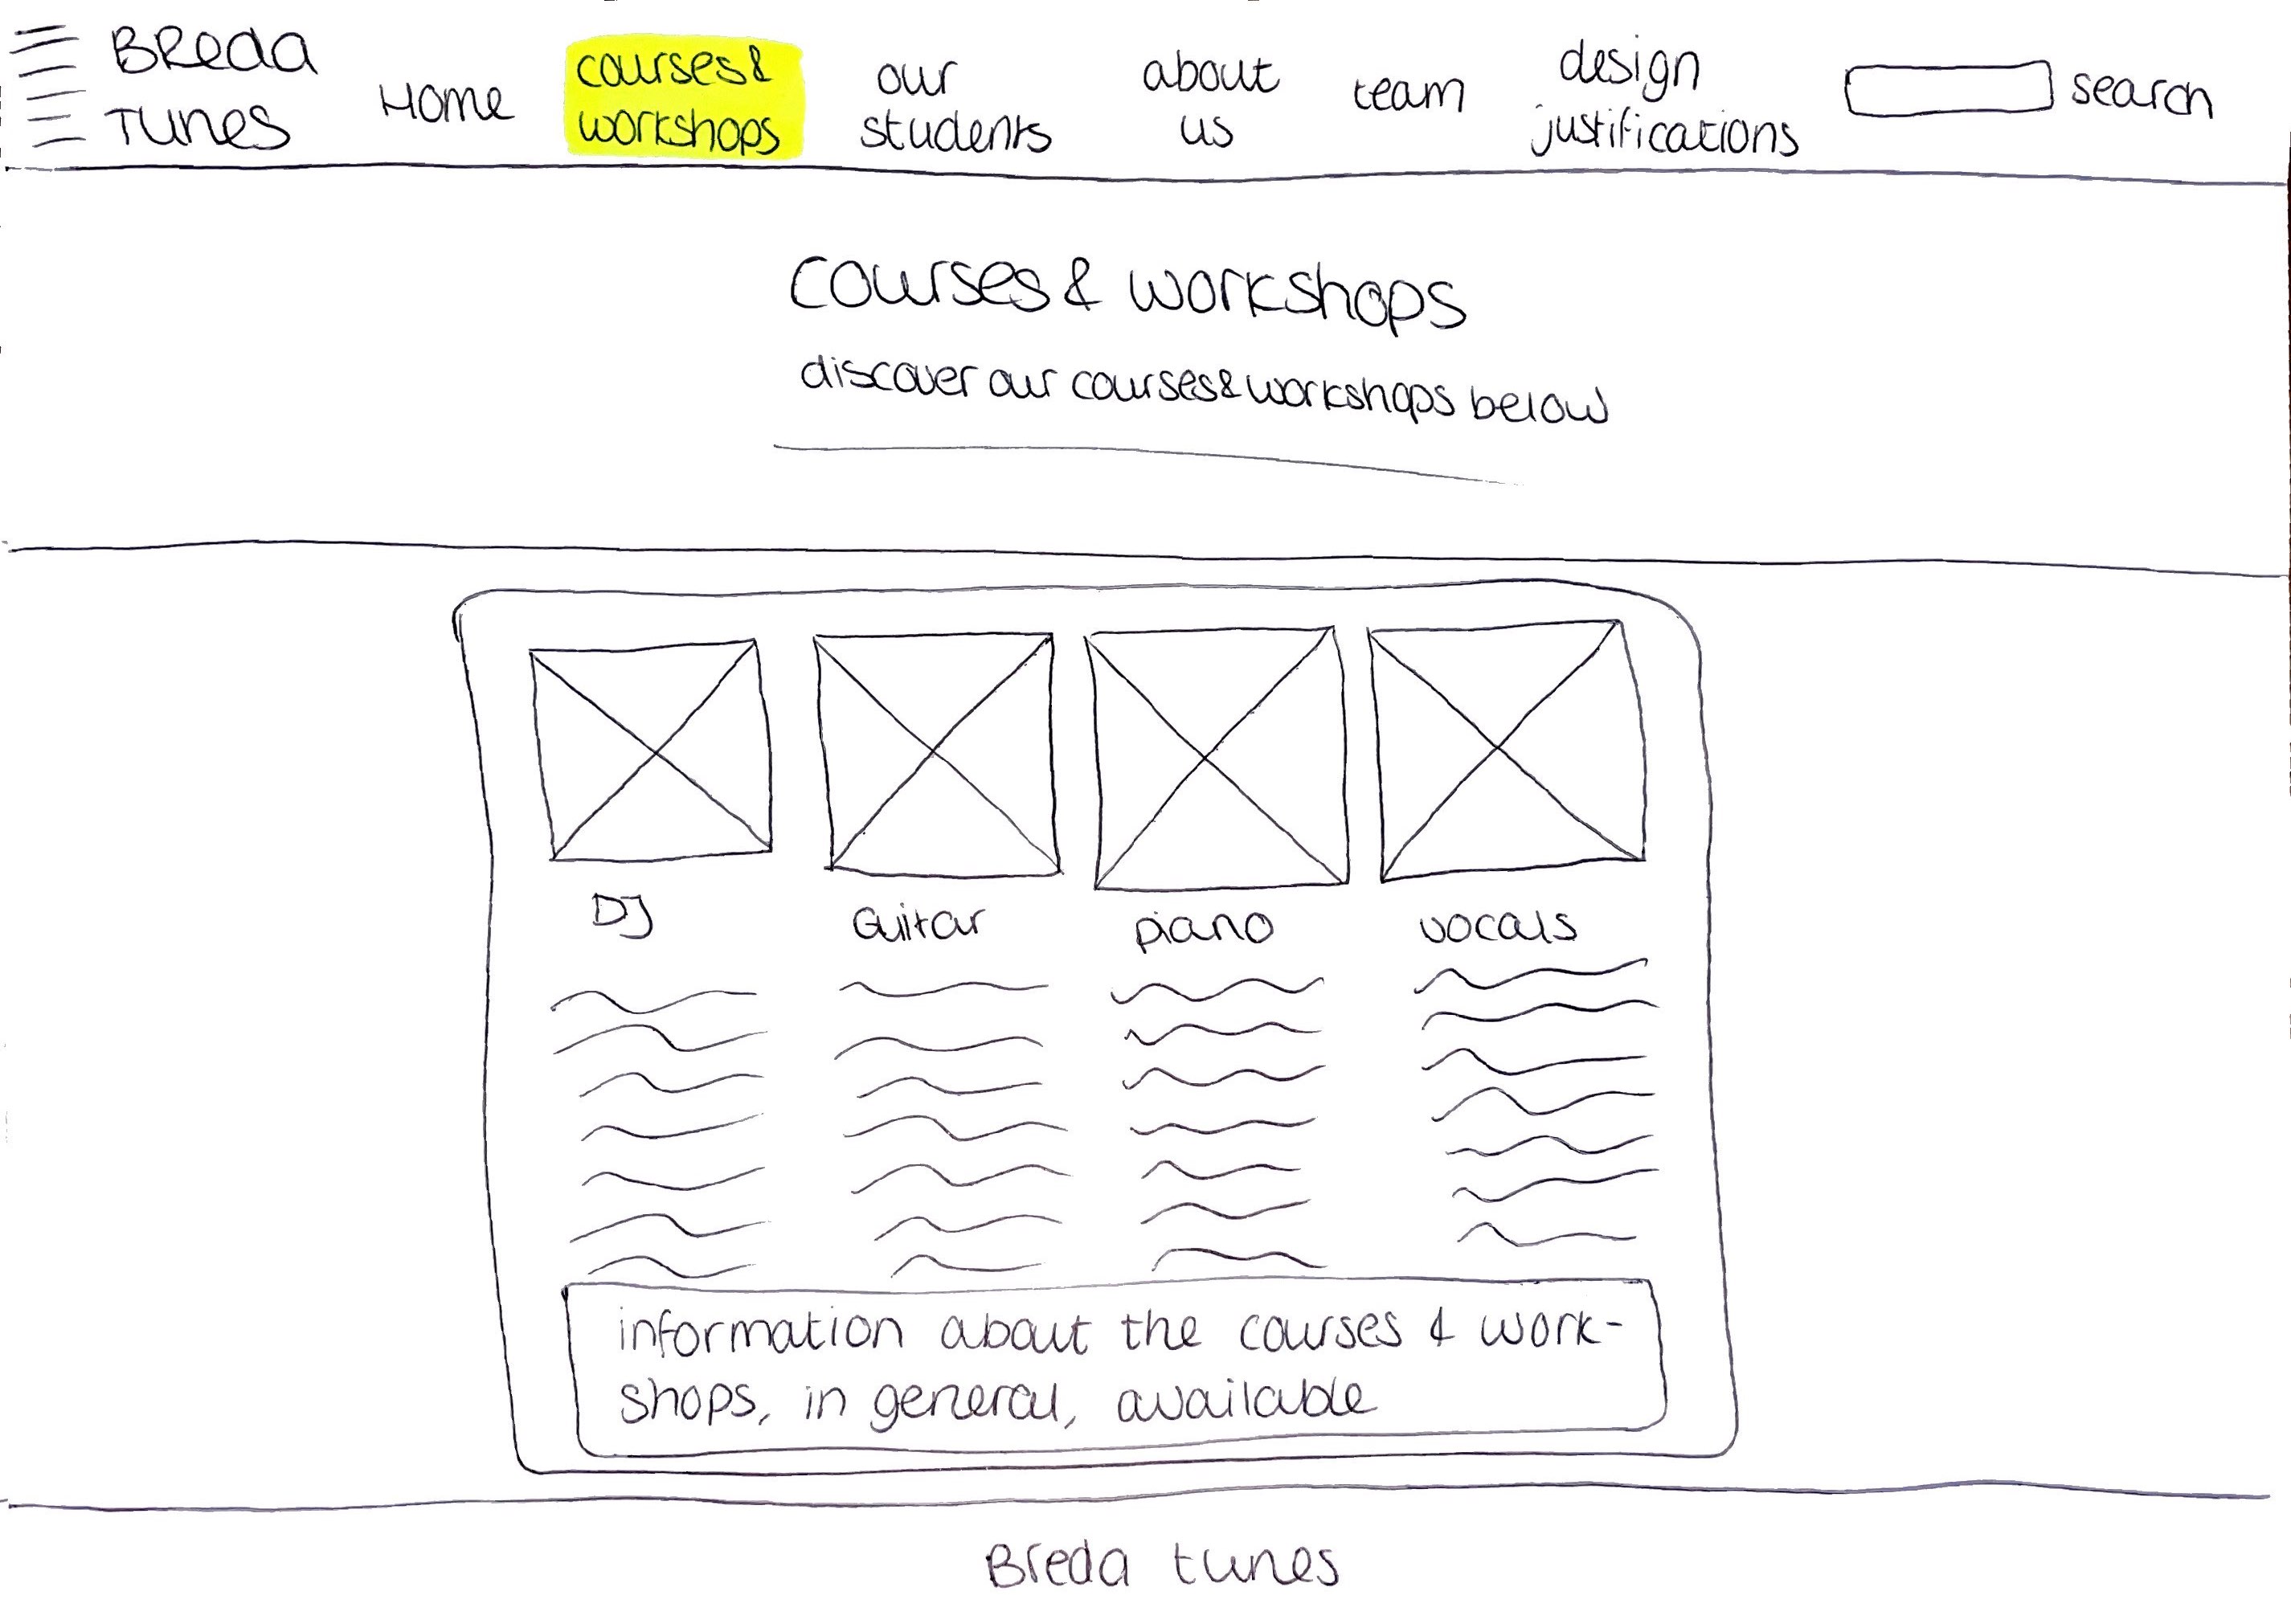 Breda
Tunes
Home
courses &
workshops
our
students
about
us
team
design
justifications
search
courses & workshops
discover our courses & workshops below
DJ
Guitar
piano
vocals
information about the courses & work-
shops, in general, available
Breda tunes